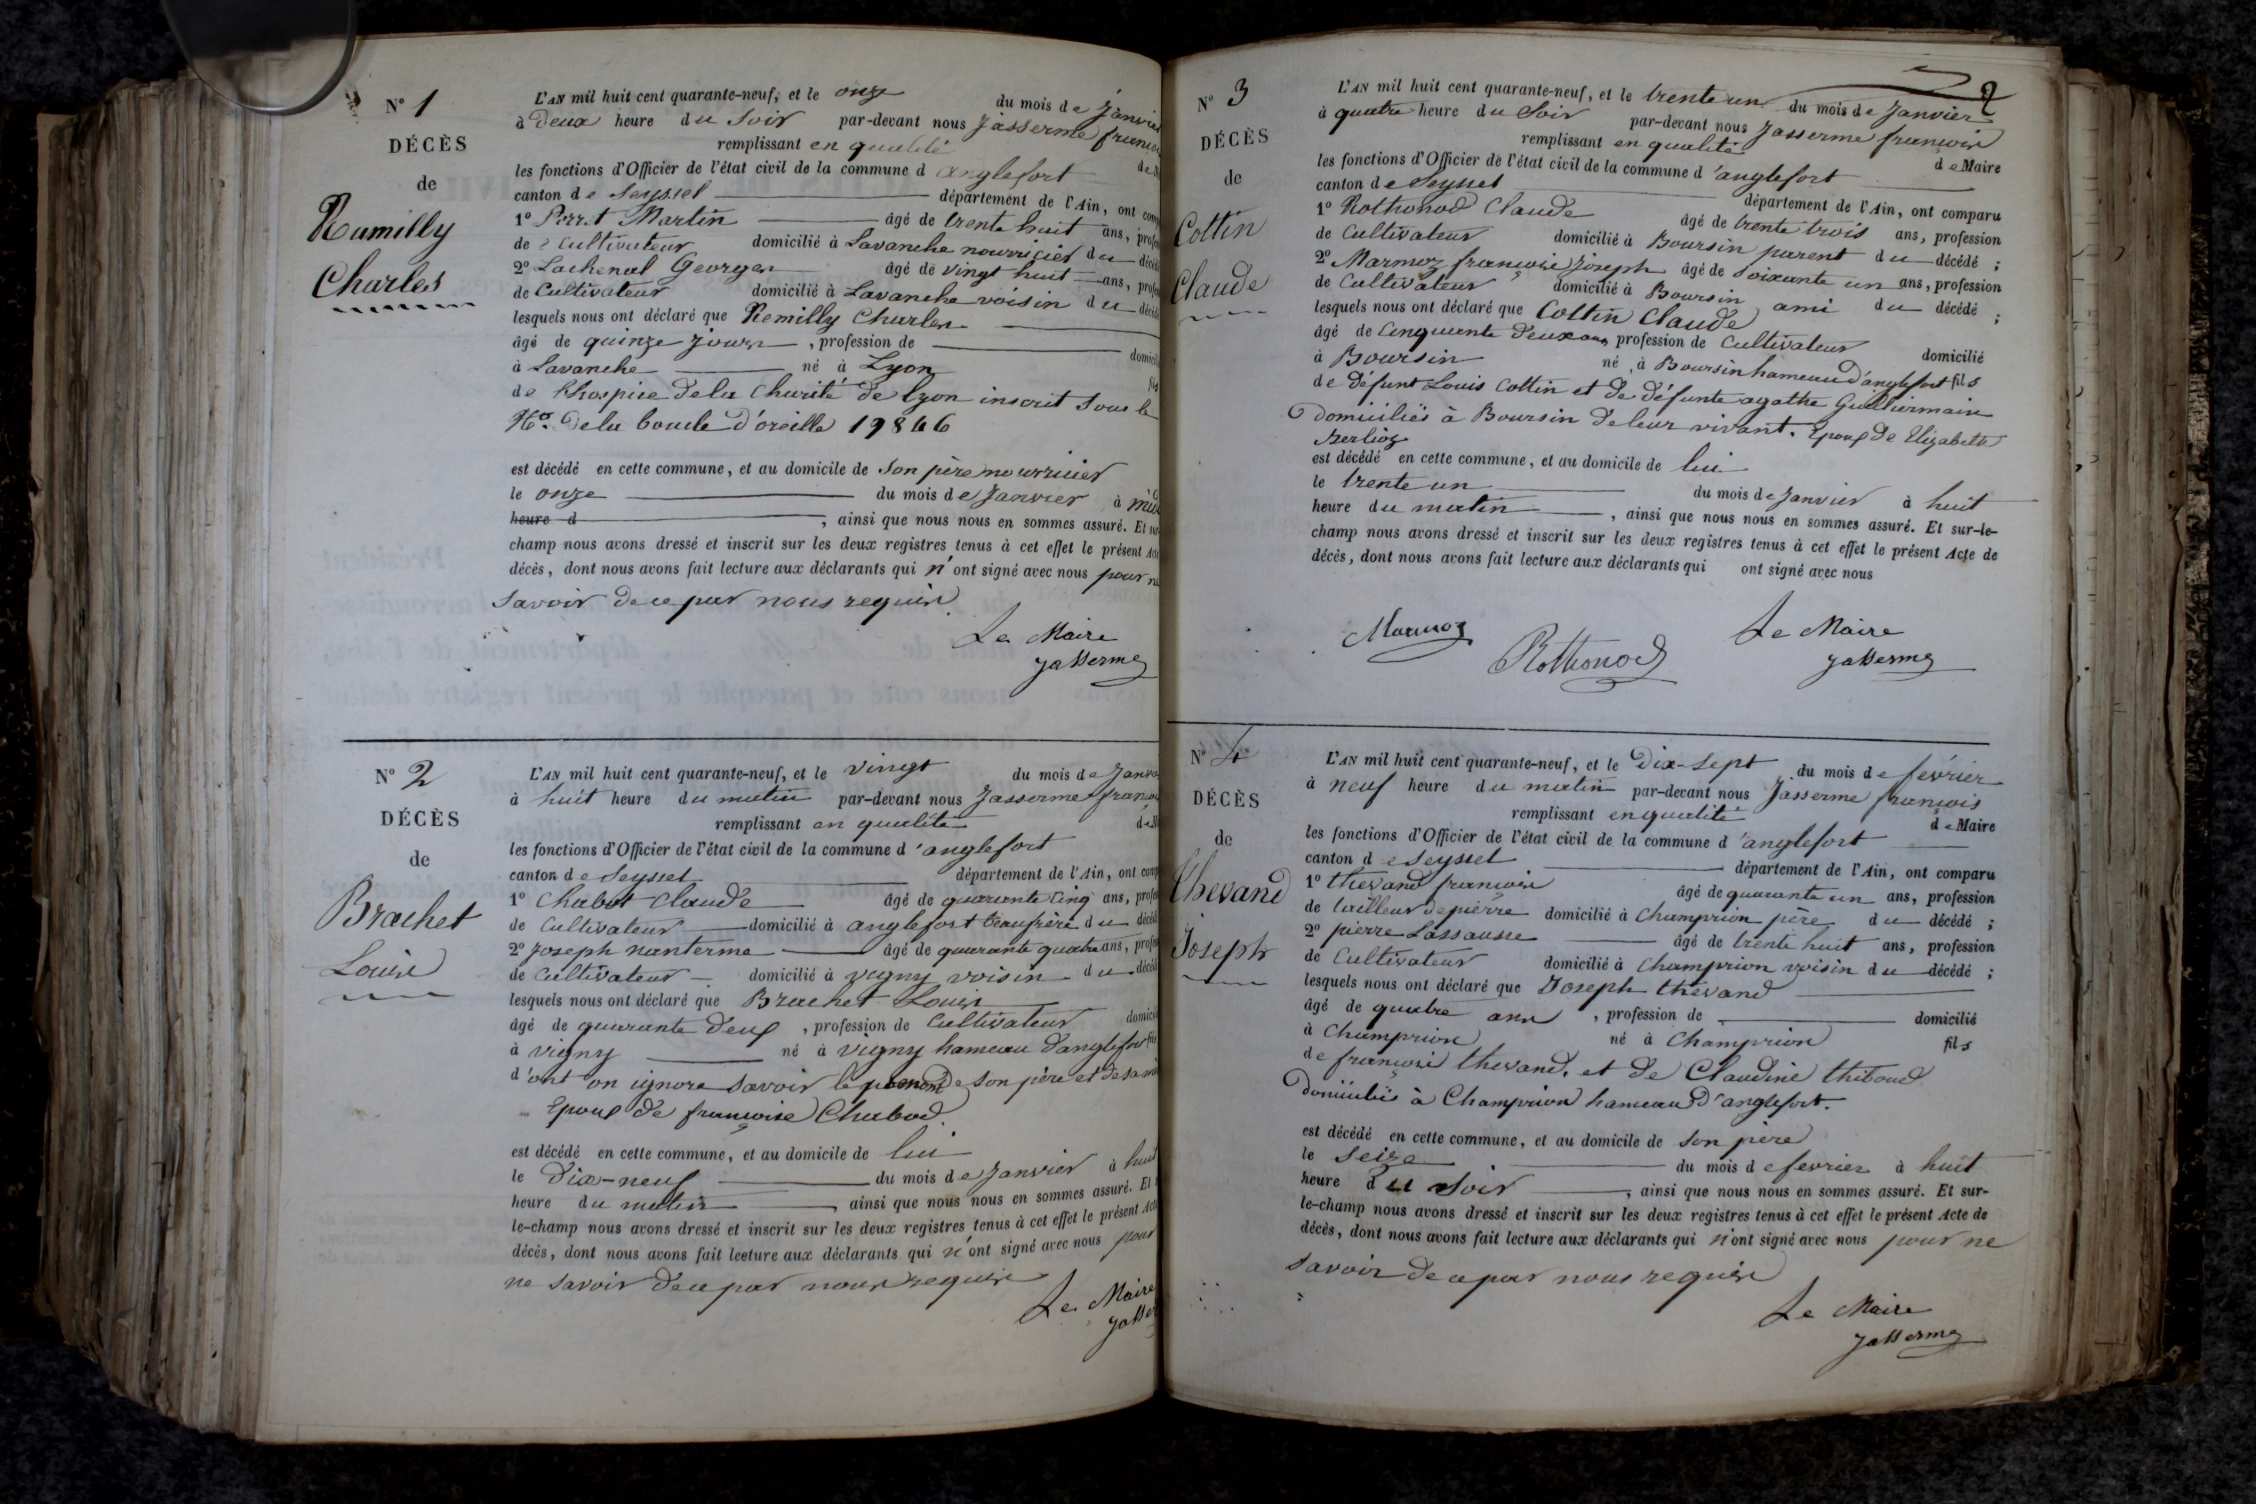 N° 1
DÉCÈS
de
Rumilly
Charles
L'AN mil huit cent quarante-neuf, et le onze du mois de Janvier
à deux heure du Soir par-devant nous Jasserme
remplissant en qualité
les fonctions d'Officier de l'état civil de la commune d anglefort
canton de Seyssel département de l'Ain, ont
1° Perret Martin âgé de trente huit ans,
de cultivateur domicilié à Lavanche nourricier du
2° Lachenal Georges âgé de vingt huit ans,
de Cultivateur domicilié à Lavanche voisin du
lesquels nous ont déclaré que Remilly Charles
âgé de quinze jours, profession de
à Lavanche né à Lyon
de l'hospice dela Charité de lyon inscrit sous le
N° dela boucle d'oreille 19846
est décédé en cette commune, et au domicile de Son père nourricier
le onze du mois de Janvier à
heure d , ainsi que nous nous en sommes assuré. Et
champ nous avons dressé et inscrit sur les deux registres tenus à cet effet le présent
décès, dont nous avons fait lecture aux déclarants qui n'ont signé avec nous pour
savoir dece par nous requis
Le Maire
Jasserme
N° 2
DÉCÈS
de
Brachet
Louis
L'AN mil huit cent quarante-neuf, et le vingt du mois de
à huit heure du matin par-devant nous Jasserme
remplissant en qualité
les fonctions d'Officier de l'état civil de la commune d'anglefort
canton de Seyssel département de l'Ain, ont
1° Chabot Claude âgé de quarante cinq ans,
de Cultivateur domicilié à anglefort beaufrère du
2° Joseph nanterme âgé de quarante quatre ans,
de Cultivateur domicilié à vigny voisin du
lesquels nous ont déclaré que Brachet Louis
âgé de quarante deux, profession de Cultivateur
à vigny né à vigny hameau d'anglefort
d'ont on ignore savoir le prenom de son père et de sa
Epoux de françoise Chabod.
est décédé en cette commune, et au domicile de lui
le Dix-neuf du mois de Janvier à huit
heure du matin , ainsi que nous nous en sommes assuré. Et
le-champ nous avons dressé et inscrit sur les deux registres tenus à cet effet le présent
décès, dont nous avons fait lecture aux déclarants qui n'ont signé avec nous pour
ne savoir dece par nous requis
Le Maire
N° 3
DÉCÈS
de
Cottin
Claude
2
L'AN mil huit cent quarante-neuf, et le trente un du mois de Janvier
à quatre heure du Soir par-devant nous Jasserme françois
remplissant en qualité de Maire
les fonctions d'Officier de l'état civil de la commune d'anglefort
canton de Seyssel département de l'Ain, ont comparu
1° Rothonod Claude âgé de trente trois ans, profession
de Cultivateur domicilié à Boursin parent du décédé ;
2° Marmoz françois Joseph âgé de soixante un ans, profession
de Cultivateur domicilié à Boursin ami du décédé ;
lesquels nous ont déclaré que Cottin Claude
âgé de Cinquante deux ans, profession de Cultivateur domicilié
à Boursin né à Boursin hameau d'anglefort fils
de défunt Louis Cottin et de défunte agathe Guilliermain
domiciliés à Boursin de leur vivant. Epoux de Elizabeth
Berlioz
est décédé en cette commune, et au domicile de lui
le trente un du mois de Janvier à huit
heure du matin , ainsi que nous nous en sommes assuré. Et sur-le-
champ nous avons dressé et inscrit sur les deux registres tenus à cet effet le présent Acte de
décès, dont nous avons fait lecture aux déclarants qui ont signé avec nous
Marmoz
Rothonod
Le Maire
Jasserme
N° 4
DÉCÈS
de
Thevand
Joseph
L'AN mil huit cent quarante-neuf, et le Dix-sept du mois de février
à neuf heure du matin par-devant nous Jasserme françois
remplissant en qualité de Maire
les fonctions d'Officier de l'état civil de la commune d'anglefort
canton de Seyssel département de l'Ain, ont comparu
1° thevand françois âgé de quarante un ans, profession
de tailleur de pierre domicilié à Champrion père du décédé ;
2° pierre Lassausse âgé de trente huit ans, profession
de Cultivateur domicilié à Champrion voisin du décédé ;
lesquels nous ont déclaré que Joseph thevand
âgé de quatre ans , profession de domicilié
à Champrion né à Champrion fils
de françois thevand, et de Claudine thiboud
domiciliés à Champrion hameau d'anglefort.
est décédé en cette commune, et au domicile de son père
le seize du mois de fevrier à huit
heure du soir , ainsi que nous nous en sommes assuré. Et sur-
le-champ nous avons dressé et inscrit sur les deux registres tenus à cet effet le présent Acte de
décès, dont nous avons fait lecture aux déclarants qui n'ont signé avec nous pour ne
savoir dece par nous requis
Le Maire
Jasserme